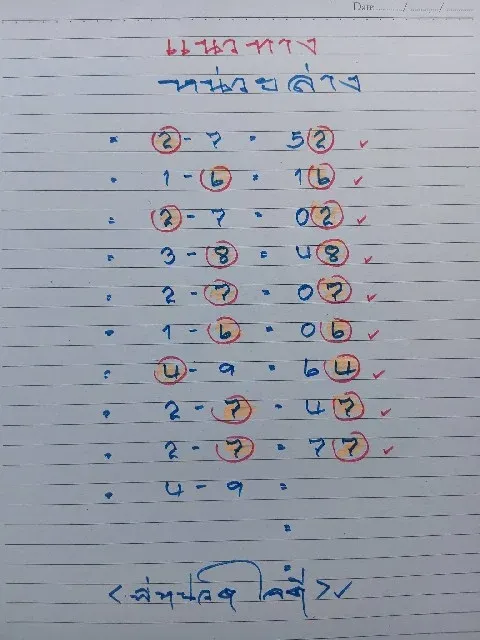 Date ........../........../..........
แนวทาง
หน่วยล่าง
= 2 - 7 = 52 ✓
= 1 - 6 = 16 ✓
= 2 - 7 = 02 ✓
= 3 - 8 = 48 ✓
= 2 - 7 = 07 ✓
= 1 - 6 = 06 ✓
= 4 - 9 = 64 ✓
= 2 - 7 = 47 ✓
= 2 - 7 = 77 ✓
= 4 - 9 =
=
=